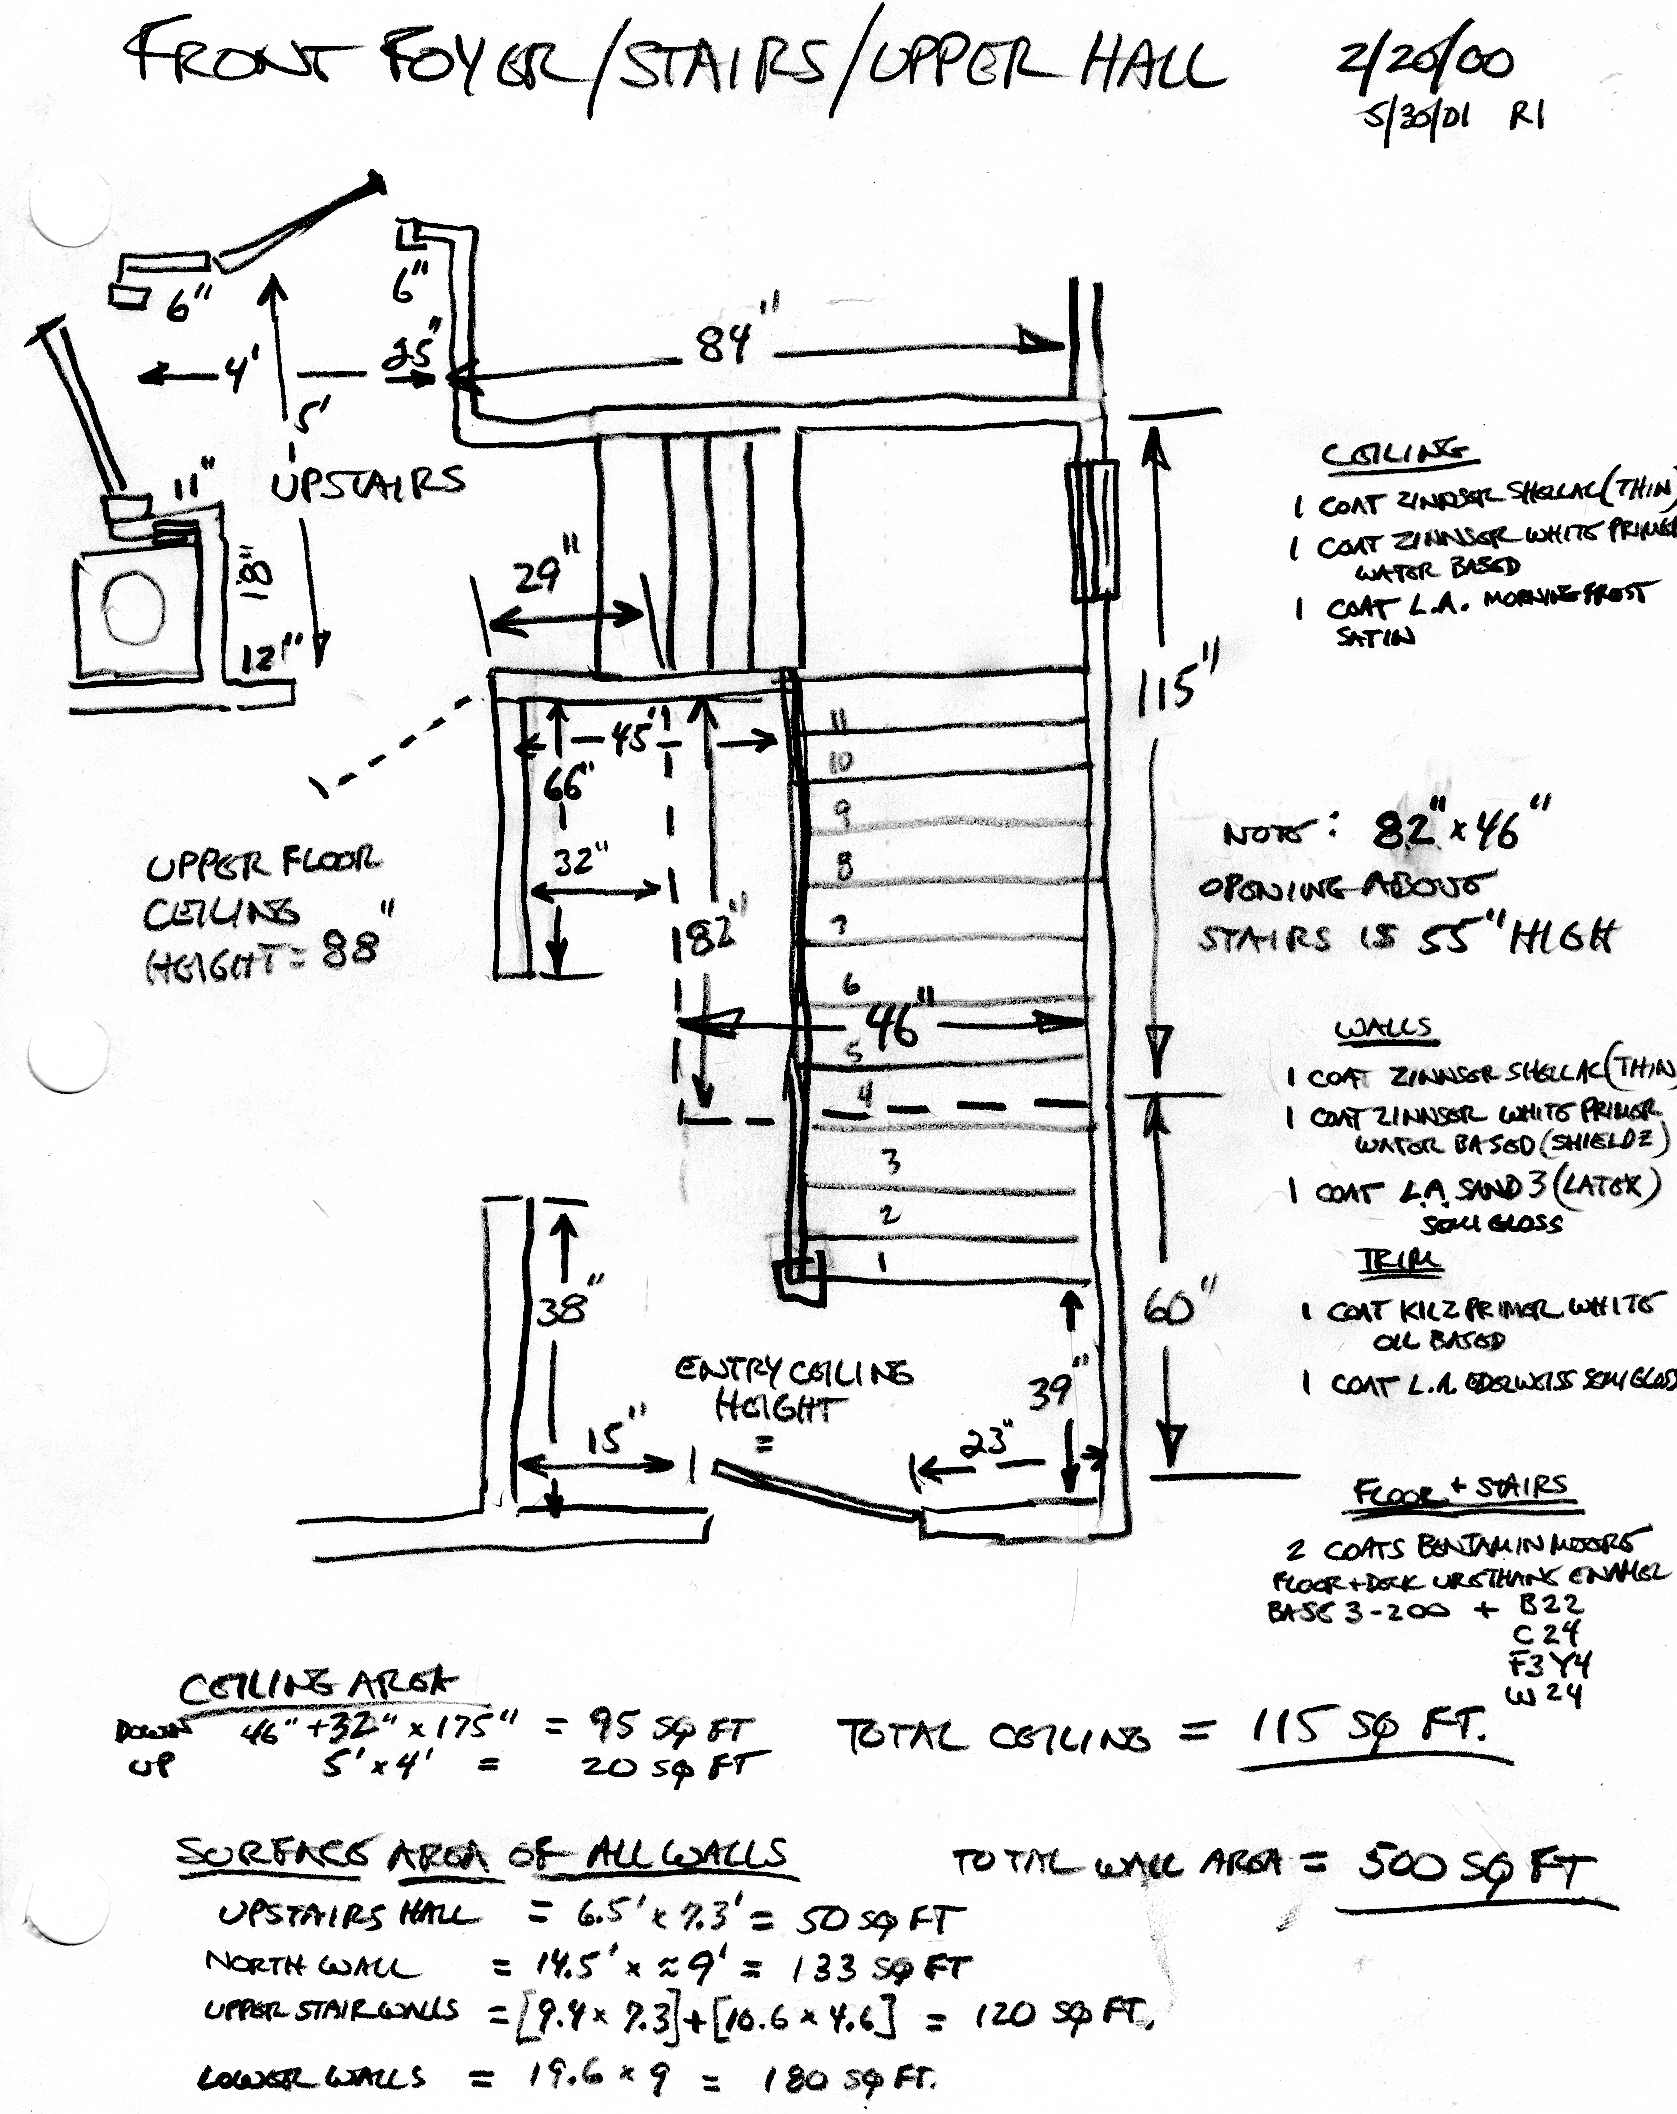 FRONT FOYER/STAIRS/UPPER HALL
2/20/00
5/30/01 R1
6"
6"
4'
25"
84"
5'
UPSTAIRS
11"
18"
12"
29"
45"
66"
32"
82"
46"
115"
60"
UPPER FLOOR
CEILING
HEIGHT = 88"
11
10
9
8
7
6
5
4
3
2
1
38"
15"
ENTRY CEILING
HEIGHT
=
39"
23"
CEILING
1 COAT ZINNSER SHELLAC (THIN)
1 COAT ZINNSER WHITE PRIMER
WATER BASED
1 COAT L.A. MORNING FROST
SATIN
NOTE: 82" x 46"
OPENING ABOVE
STAIRS IS 55" HIGH
WALLS
1 COAT ZINNSER SHELLAC (THIN)
1 COAT ZINNSER WHITE PRIMER
WATER BASED (SHIELDZ)
1 COAT L.A. SAND 3 (LATEX)
SEMI GLOSS
TRIM
1 COAT KILZ PRIMER WHITE
OIL BASED
1 COAT L.A. EDELWEISS SEMI GLOSS
FLOOR + STAIRS
2 COATS BENJAMIN MOORE
FLOOR + DECK URETHANE ENAMEL
BASE 3-200 + B22
C 24
F3 Y4
W 24
CEILING AREA
DOWN 46" + 32" x 175" = 95 SQ FT
UP 5' x 4' = 20 SQ FT
TOTAL CEILING = 115 SQ FT.
SURFACE AREA OF ALL WALLS
TOTAL WALL AREA = 500 SQ FT
UPSTAIRS HALL = 6.5' x 7.3' = 50 SQ FT
NORTH WALL = 14.5' x ≈ 9' = 133 SQ FT
UPPER STAIR WALLS = [9.4 x 7.3] + [10.6 x 4.6] = 120 SQ FT.
LOWER WALLS = 19.6 x 9 = 180 SQ FT.